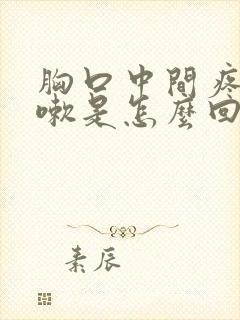 胸口中間疼
嗽是怎麼回
素辰